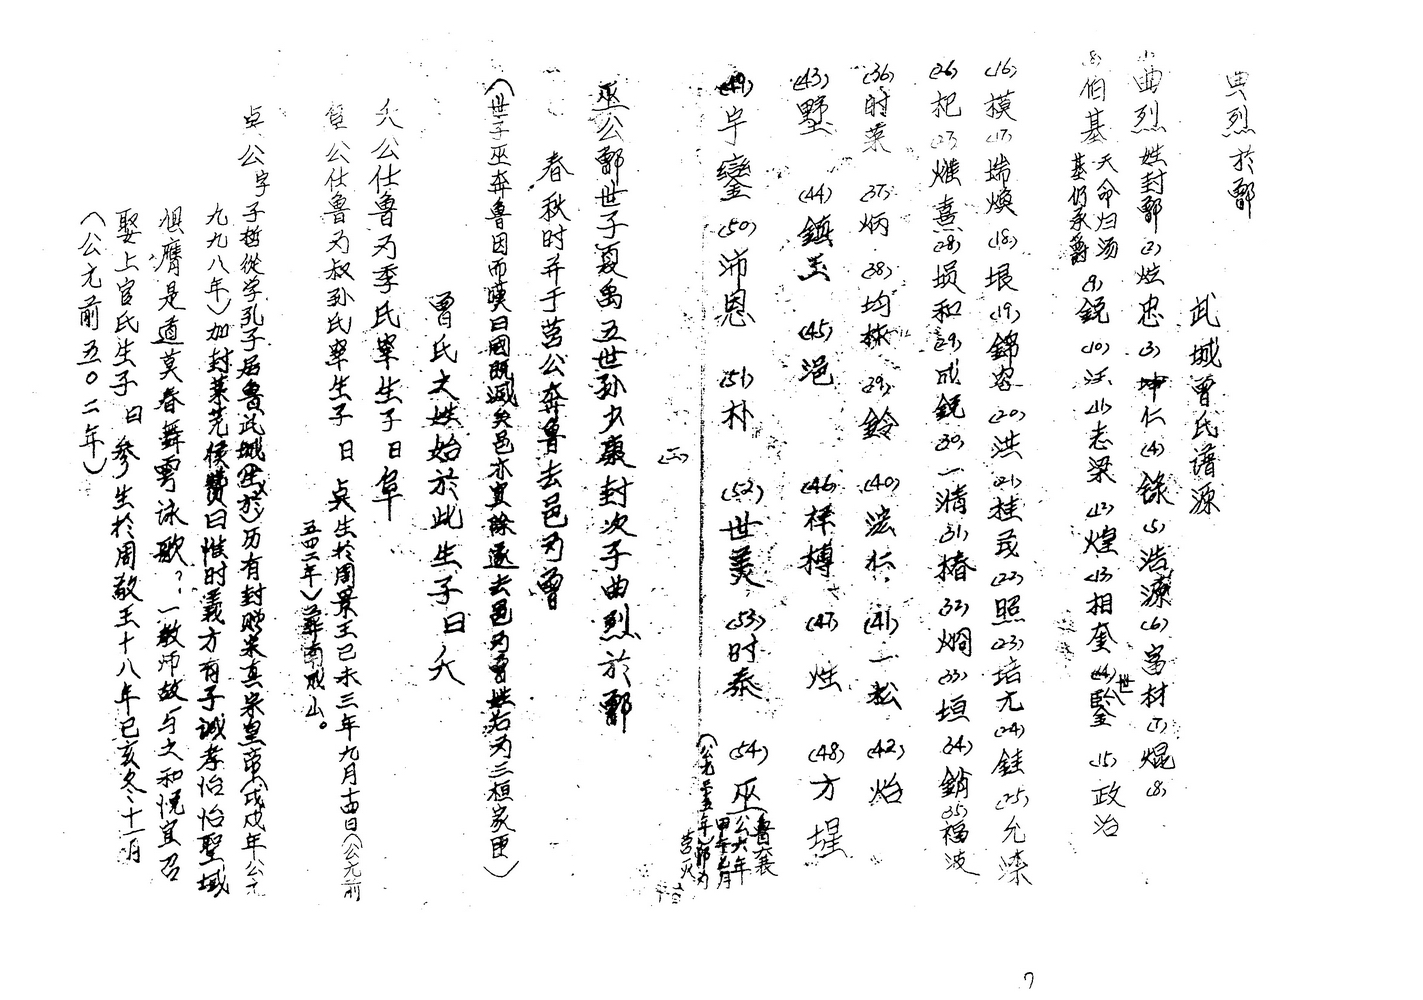 曲烈於鄫
武城曾氏谱源
(1)曲烈 姓封鄫 (2)炫忠 (3)坤仁 (4)録 (5)浩源 (6)富材 (7)焜 (8)
(8)伯基 天命归汤 基仍承爵 (9)鋭 (10)汪 (11)志梁 (12)煌 (13)相奎 (14)世鋻公 (15)政治
(16)模 (17)瑞焕 (18)垠 (19)錦容 (20)洪 (21)桂茂 (22)照 (23)培尤 (24)銈 (25)允
(26)杞 (27)熹 (28)埙和 (29)成鋭 (30)一清 (31)椿 (32)炯 (33)垣 (34)銷 (35)福波
(36)时菜 (37)炳 (38)均林 (39)鈴 (40)浤仁 (41)一松 (42)炲
(43)墅 (44)鎮玉 (45)浥 (46)梓榑 (47)烓 (48)方堭
(49)宇鑾 (50)沛恩 (51)朴 (52)世美 (53)时泰 (54)巫 公 魯襄
(二)
巫公鄫世子夏禹五世孙少康封次子曲烈於鄫
春秋时并于莒公奔魯去邑为曾
(世子巫奔鲁因而嘆曰國既滅矣邑亦宜除遂去邑为曾姓右为三桓家臣)
曾氏之姓始於此生子曰夭
夭公仕鲁为季氏宰生子曰阜
阜公仕鲁为叔孙氏宰生子曰点生於周景王己未三年九月十五日(公元前
五四二年)葬南成山。
点公字子晳從学孔子居鲁武城(生於)历有封赠宋真宗皇帝(戊戌年公元
九九八年)加封莱芜侯贊曰惟时義方有子诚孝怡怡聖域
旭膺是道莫春舞雩咏歌,一教师故与之和悦宜召
娶上官氏生子曰參生於周敬王十八年己亥冬十一月
(公元前五0二年)
7